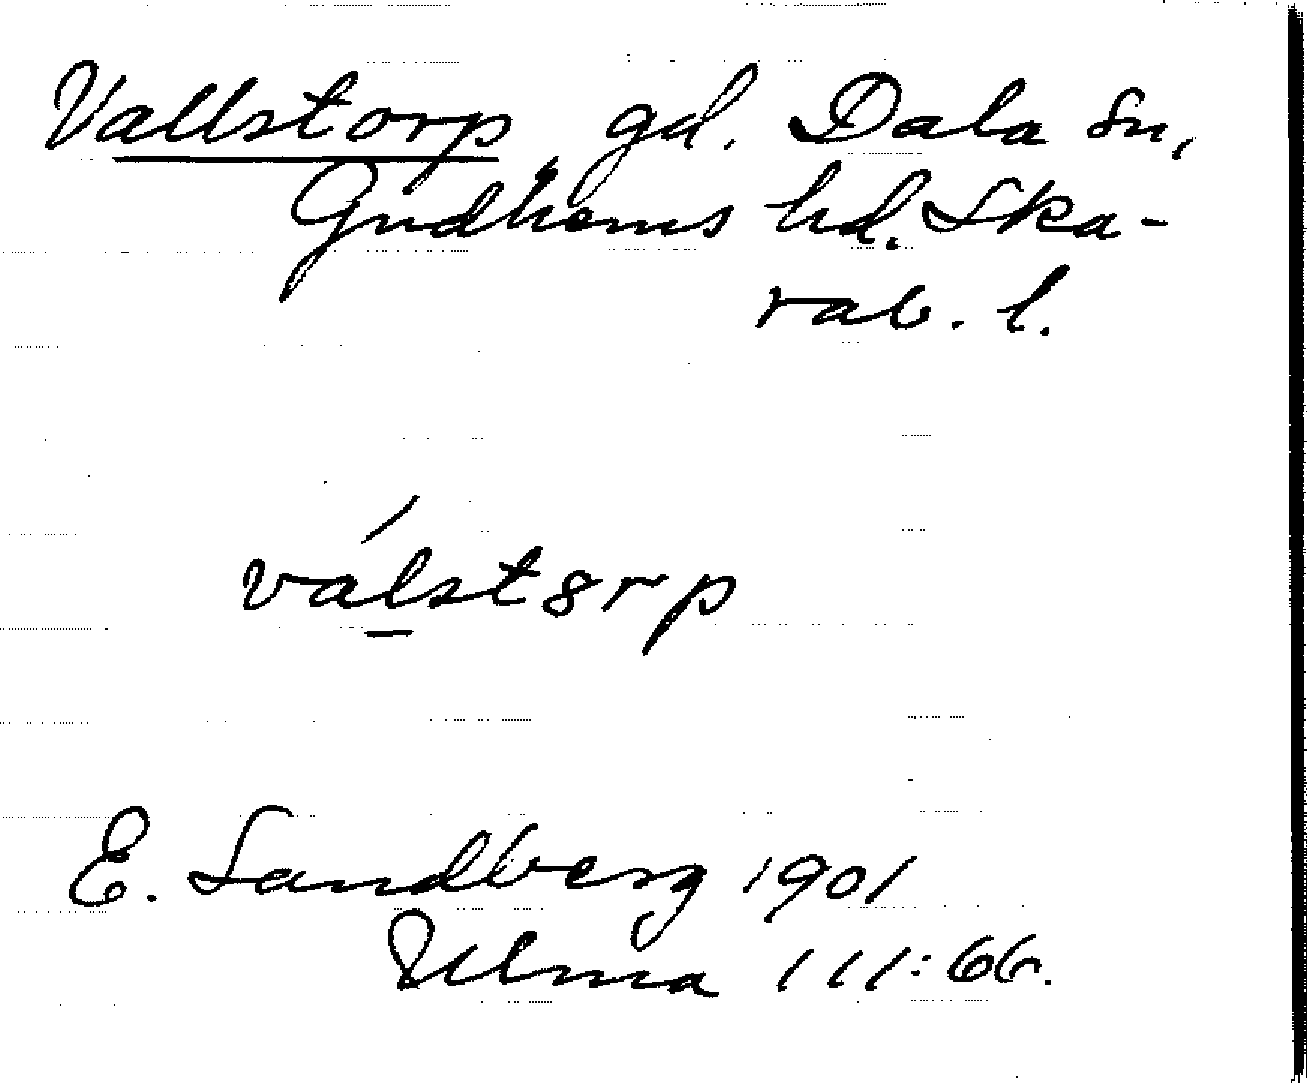 Vallstorp gd. Dala sn,
Gudhems hd. Ska-
rab. l.
válst8rp
E. Sandberg 1901
Ulma 111:66.